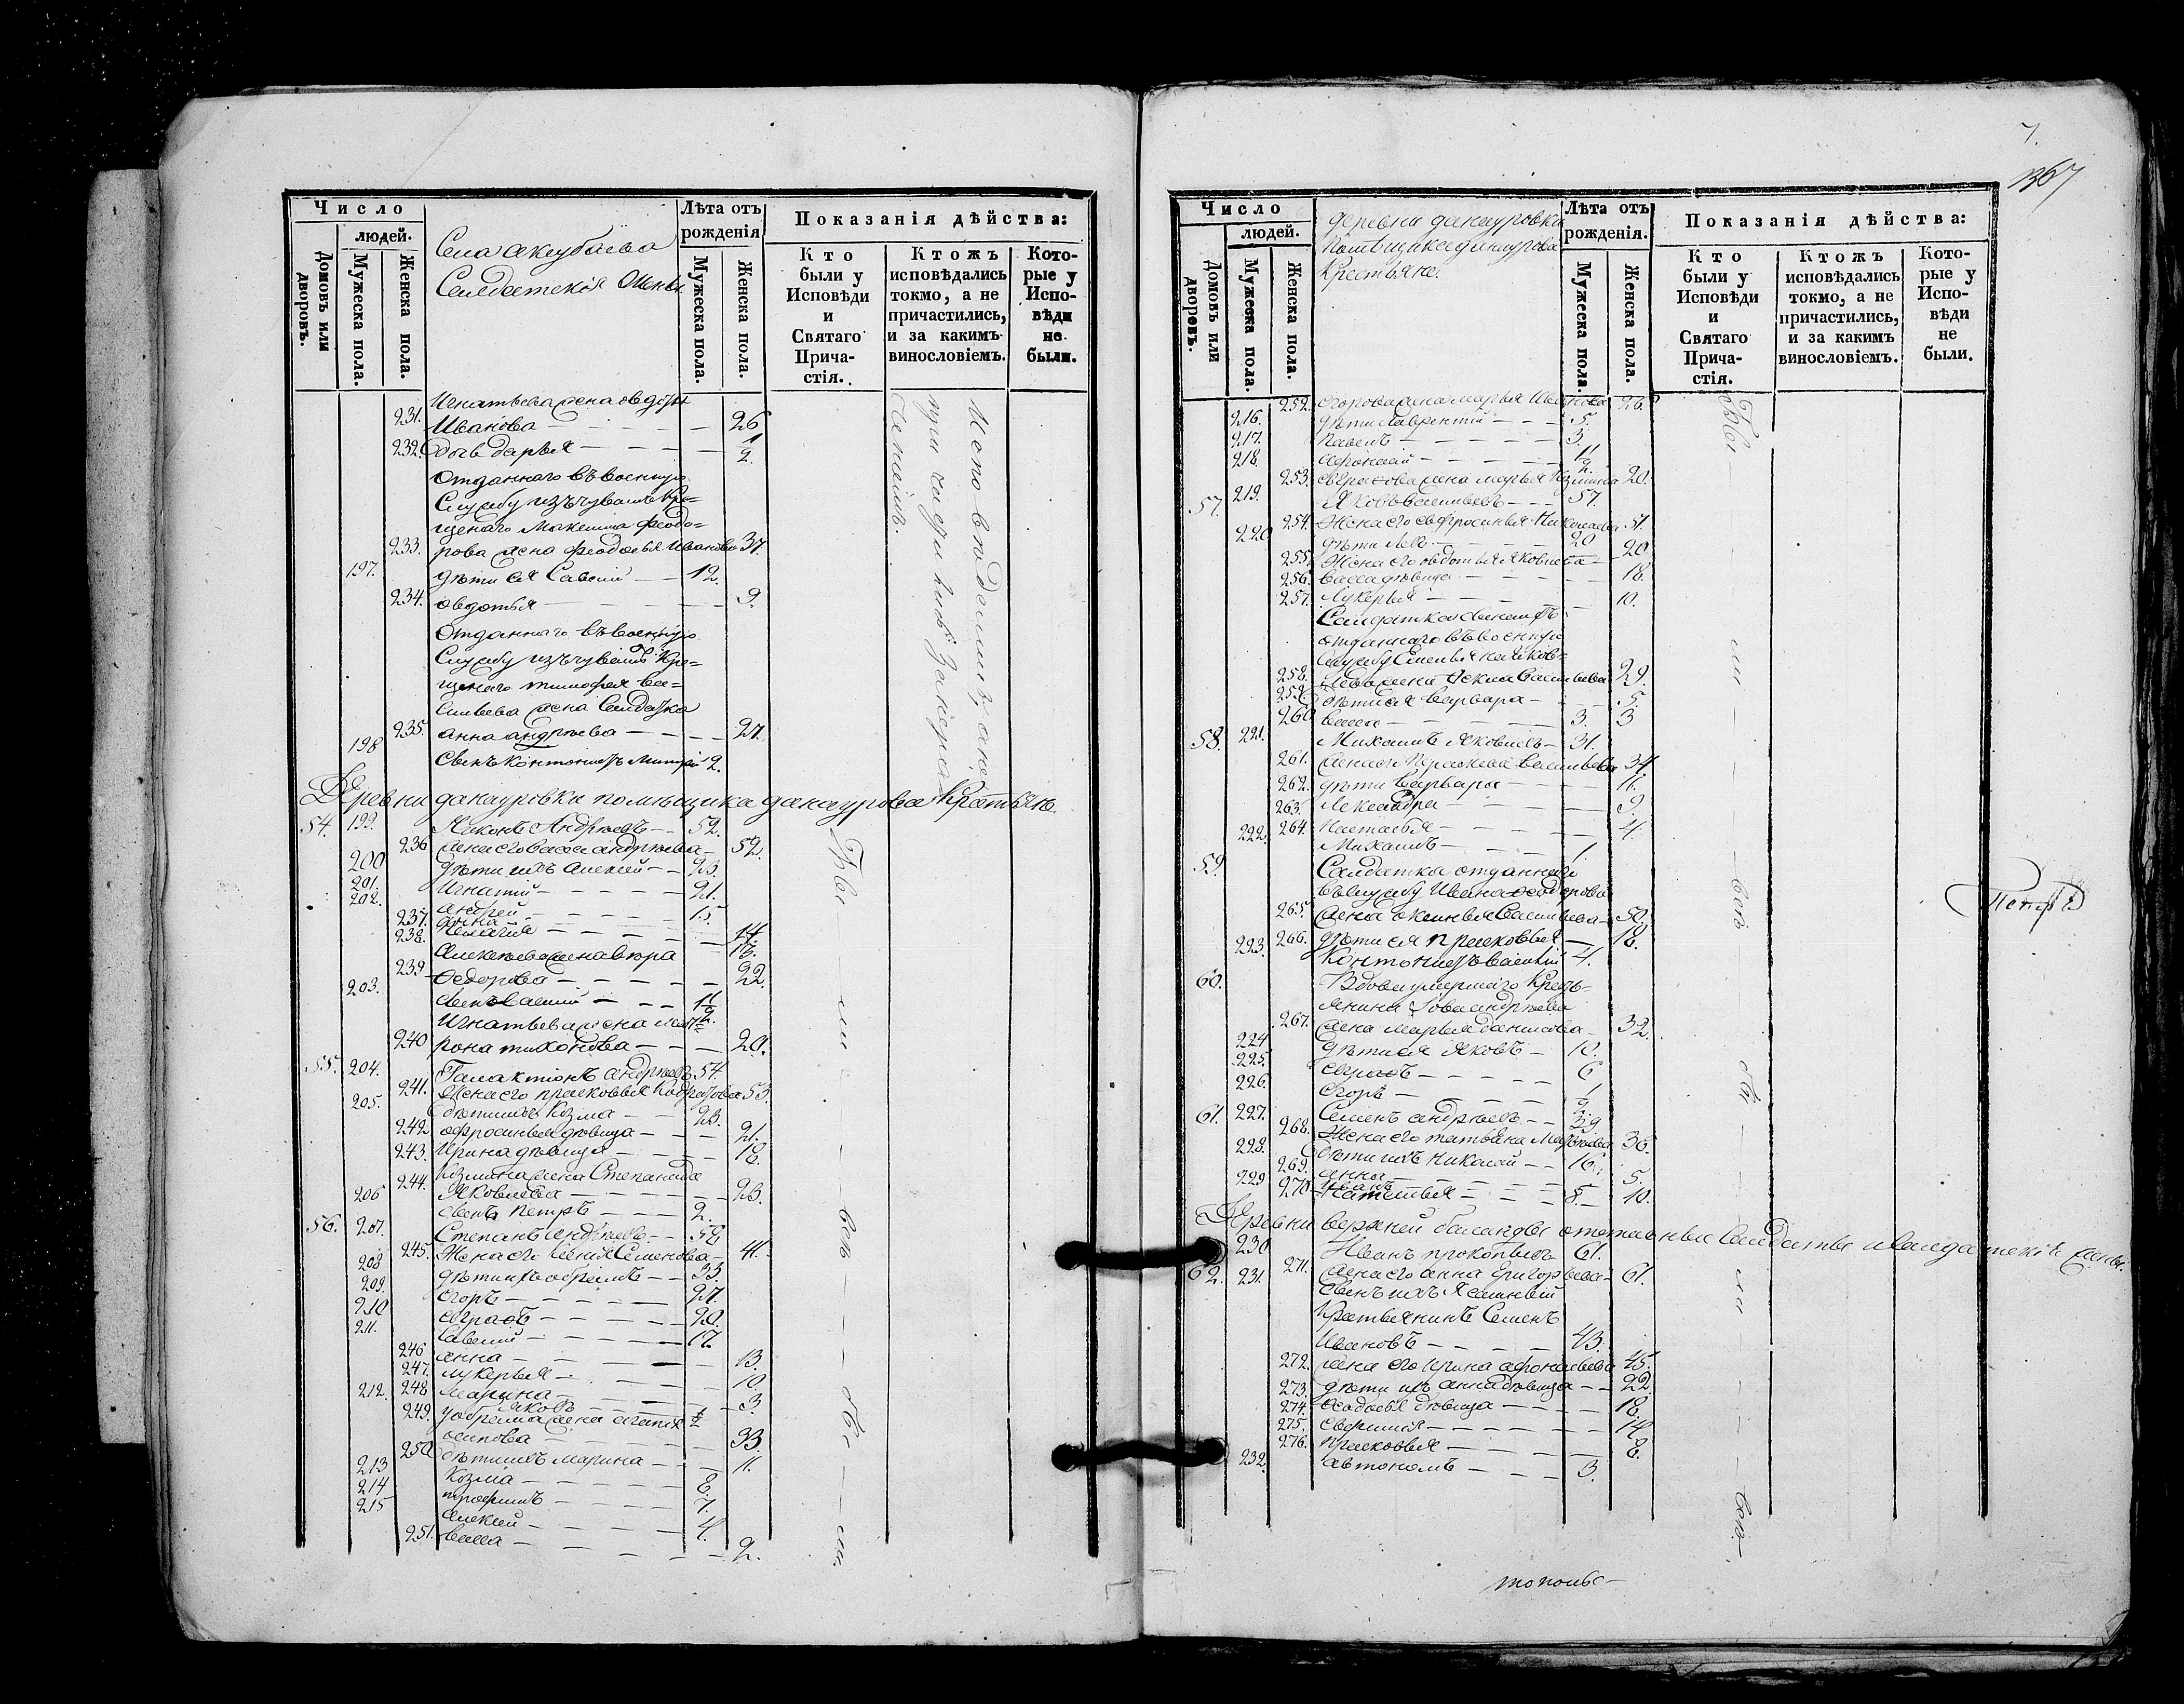 Число
людей.
Домовъ или дворовъ.
Мужеска пола.
Женска пола.
Села Аккубаева
Салдатскія жены.
Лѣта отъ
рожденія
Мужеска пола.
Женска пола.
Показанія дѣйства:
Кто
были у
Исповѣди
и
Святаго
Прича-
стія.
Ктожъ
исповѣдались
токмо, а не
причастились,
и за какимъ
винословіемъ.
Кото-
рые у
Испо-
вѣди
не
были.
Игнатьева жена овдотья
231. Иванова — 26
232. дочь дарья — 1/2.
Отданнаго въ военную
Службу изъ чувашъ Кре-
щенаго Максима Феодо-
233. рова жена Феодосья Иванова 37.
197. дѣти ея Савелій — 12.
234. овдотья — 9.
Отданнаго въ военную
Службу изъ чувашъ Кре-
щенаго тимофея Ва-
сильева жена Салдатка
235. анна андрѣева — 27.
198 Сынъ Кантонистъ 2.
Деревни данауровки помѣщика данаурова Крестьяне.
54. 199. Никонъ Андрѣевъ — 52.
236 жена его андрѣева — 52.
200 дѣти ихъ алексѣй — 23.
201. Игнатій — 21.
202. андрей — 15.
237. анна — 14.
238. Пелагія — 13.
Алексѣева жена вѣра
239 Федорова — 22.
203. сынъ василій — 1/2.
Игнатьева жена мат-
240 рона тихонова — 20.
55. 204. Галактіонъ андрѣевъ 54.
241. Жена его прасковья 53.
205. дѣти ихъ Козма — 23.
242 офросинья дѣвица — 21.
243. Ирина дѣвица — 18.
Козмина жена Степанида
244. Яковлева — 23.
206 сынъ петръ — 2.
56. 207. Степанъ андрѣевъ — 58
245. Жена его Семенова — 41.
208 дѣти ихъ — 33.
209. егоръ — 27.
210 евграфъ — 20.
211. Савелій — 17.
246 анна — 13.
247. лукерья — 10.
248 Марина — 3.
212. яковъ 1/2
249. жена агапія
осипова — 33.
250 дѣти ихъ марина — 11.
213 Козма — 8.
214 трофимъ — 7.
215 алексѣй — 4.
251. васса — 2.
Бы — ли — всѣ — обы — ли.
7.
367
Число
людей.
Домовъ или дворовъ.
Мужеска пола.
Женска пола.
деревни данауровки
помѣщика данаурова
Крестьяне.
Лѣта отъ
рожденія.
Мужеска пола.
Женска пола.
Показанія дѣйства:
Кто
были у
Исповѣди
и
Святаго
Прича-
стія.
Ктожъ
исповѣдались
токмо, а не
причастились,
и за какимъ
винословіемъ.
Кото-
рые у
Испо-
вѣди
не
были.
252. егорова жена марья Иванова 26.
216. дѣти лаврентій — 5.
217. павелъ — 3.
218. афонасій — 1/2.
253. евграфова жена марья Козмина 20.
57. 219. Яковъ васильевъ — 57.
254. Жена его евфросинья Николаева 51.
220 дѣти левъ — 20
255. Жена его овдотья яковлева — 20
256. васса дѣвица — 18.
257. лукерья — 10.
отданнаго въ военную
258. жена Фекла васильева 29.
259. дѣти ея варвара — 5.
260 васса — 3
58. 221. Михаилъ яковлевъ — 31.
261. жена его Прасковья васильева 34.
262. дѣти варвара — 11.
263. александра — 9.
264. Настасья — 4.
222. Михаилъ — 1.
59. Салдатка отданнаго
въ службу Ивана Феодорова
265. жена аксинья васильева — 50.
266. дѣти ея прасковья — 18.
223. Кантонистъ василій 4.
60. Вдова умершаго Кресть-
янина андрѣева
267. жена марья данилова — 32.
224 дѣти ея яковъ — 10.
225. евграфъ — 6
226. егоръ — 1/2.
61. 227. Семенъ андрѣевъ — 39
268. Жена его татьяна 36.
228. дѣти ихъ николай — 16.
269. анна — 5.
229 Иванъ — 8.
270. Наталья — 10.
Деревни верхней баланды отставныя Салдаты и Салдатскія жены.
230 Иванъ прокопьевъ 61.
62. 271. жена его анна григорьева — 61.
231. Сынъ ихъ ясашный
Крестьянинъ Семенъ
Ивановъ — 43.
272. жена его Ирина афонасьева 45.
273. дѣти ихъ анна дѣвица — 22
274. Феодосья дѣвица — 18.
275. евфимія — 14.
276. прасковья — 8.
232. автономъ — 3.
Бы — ли — всѣ — обы — ли — всѣ.
Петръ